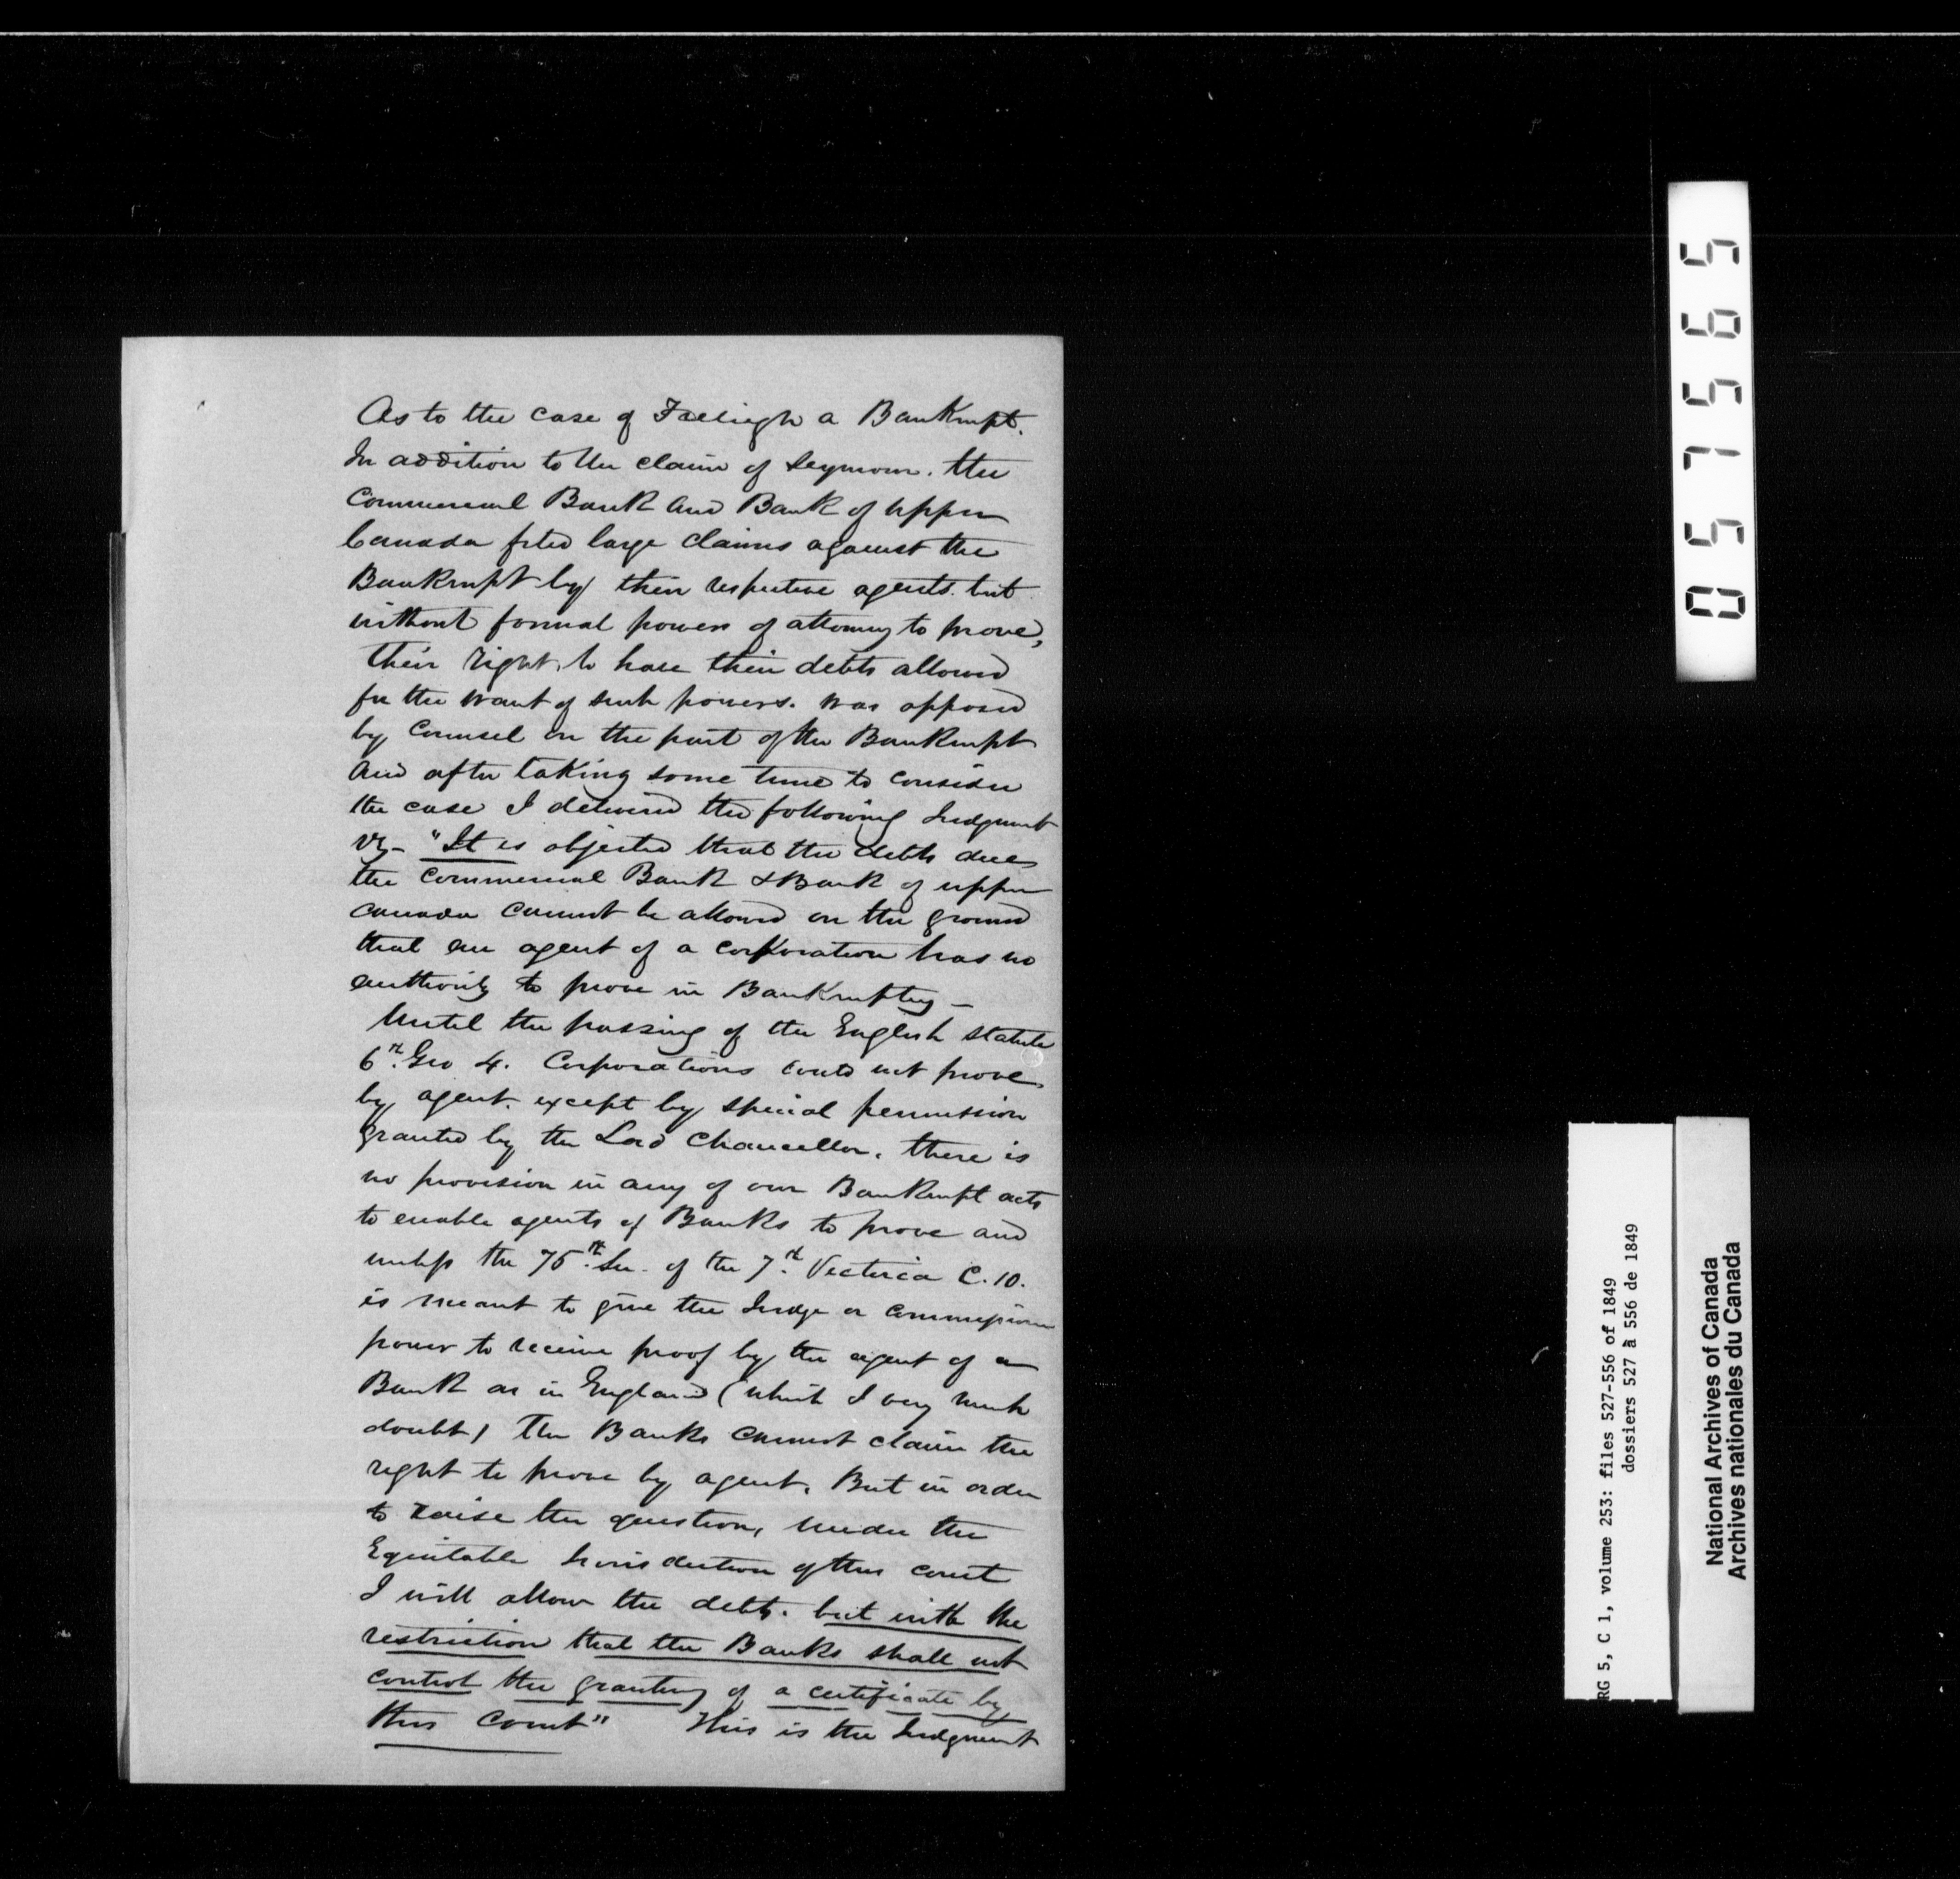 As to the case of Freliegh a Bankrupt.
In addition to the claim of Seymour. the
Commercial Bank and Bank of upper
Canada filed large claims against the
Bankrupt by their respective agents. but
without formal powers of attorney to prove,
their right, to have their debts allowed
for the want of such powers. was opposed
by Counsel on the part of the Bankrupt
and after taking some time to consider
the case I delivered the following Judgment
viz - "It is objected that the debts due
the Commercial Bank & Bank of upper
canada cannot be allowed on the ground
that an agent of a corporation has no
authority to prove in Bankruptcy -
Until the passing of the English statute
6th. Geo 4. Corporations could not prove
by agent. except by special permission
granted by the Lord Chancellor. there is
no provision in any of our Bankrupt acts
to enable agents of Banks to prove and
unless the 75th. Sec. of the 7th. Victoria C. 10.
is meant to give the Judge or Commissioner
power to receive proof by the agent of a
Bank as in England (which I very much
doubt) The Banks cannot claim the
right to prove by agent. But in order
to raise the question, under the
Equitable Jurisdiction of this court
I will allow the debts. but with the
restriction that the Banks shall not
control the granting of a certificate by
this Court" This is the Judgment
057565
RG 5, C 1, volume 253: files 527-556 of 1849
dossiers 527 à 556 de 1849
National Archives of Canada
Archives nationales du Canada